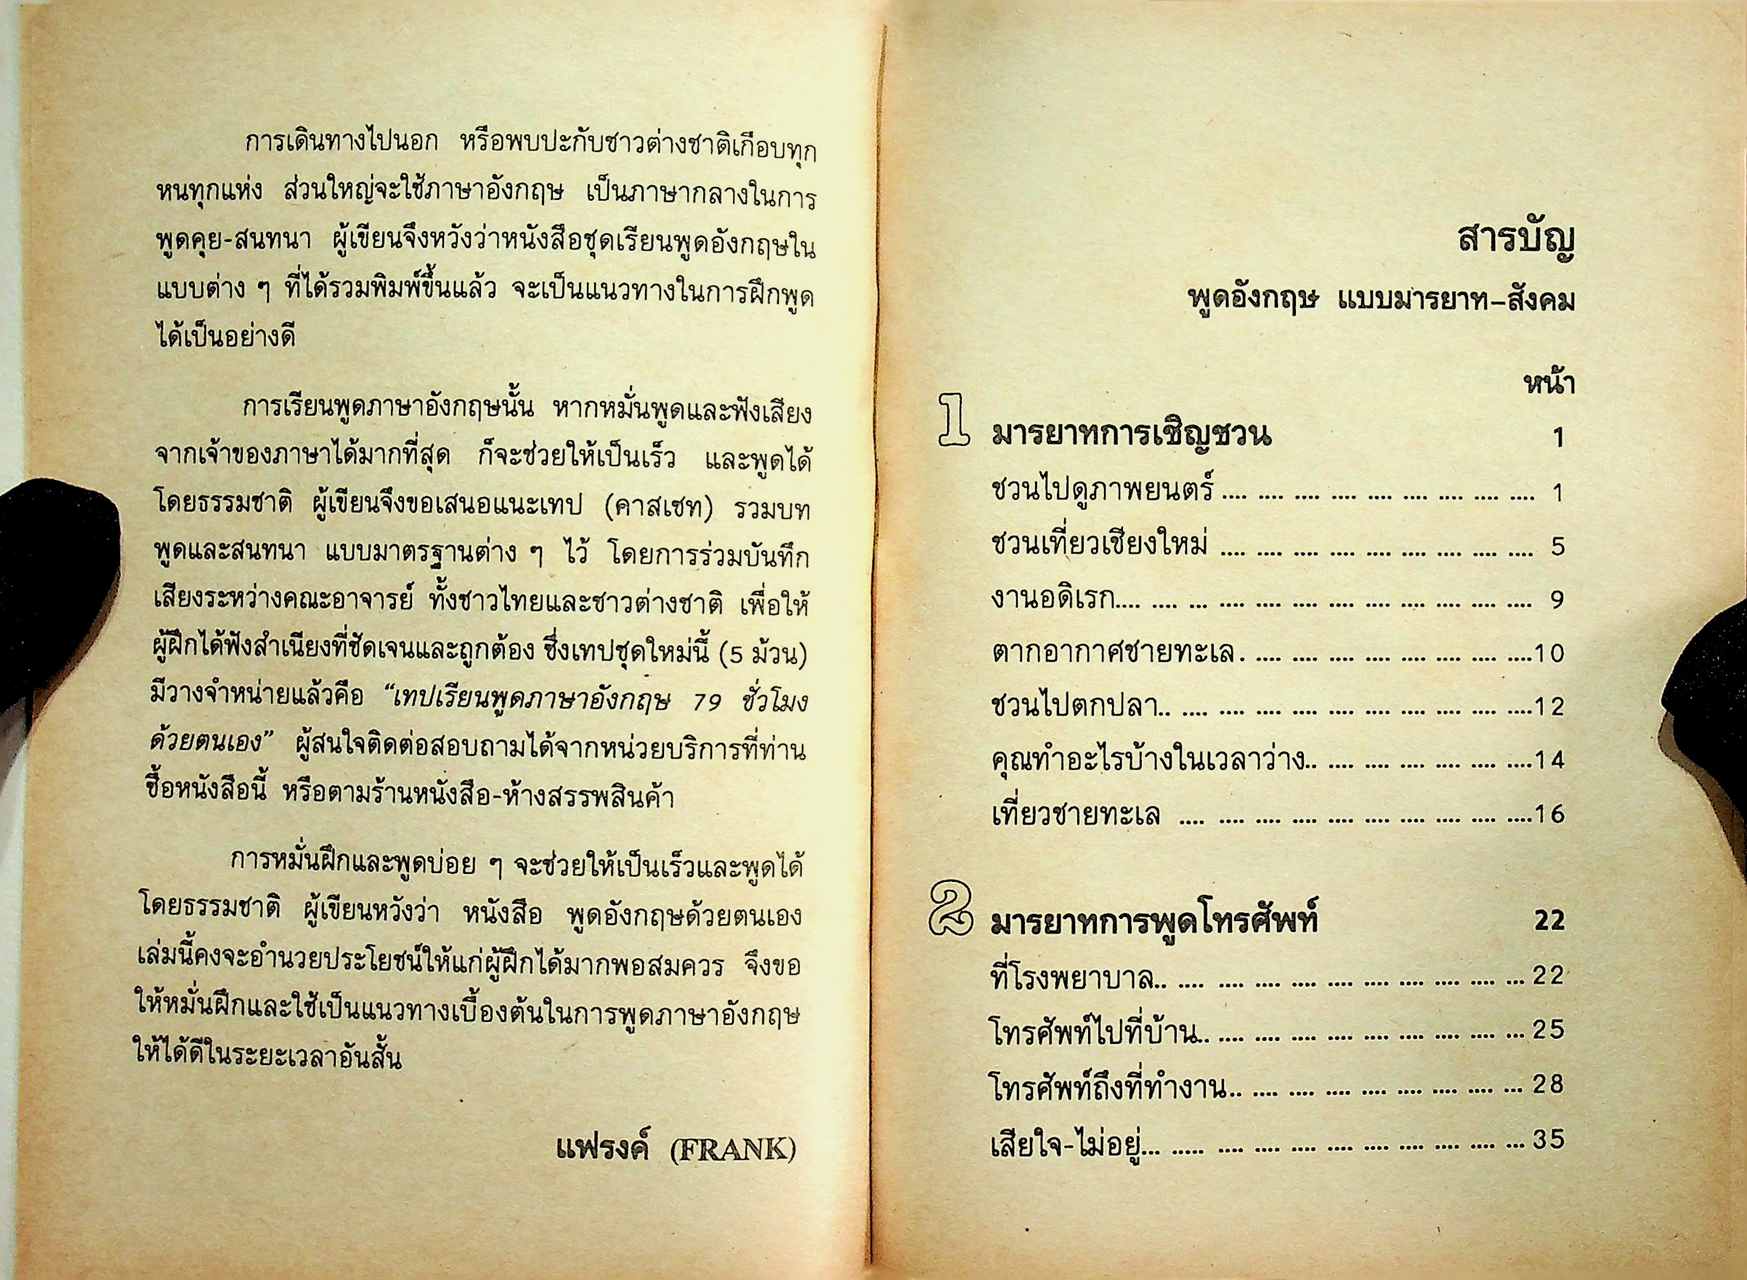 การเดินทางไปนอก หรือพบปะกับชาวต่างชาติเกือบทุก
หนทุกแห่ง ส่วนใหญ่จะใช้ภาษาอังกฤษ เป็นภาษากลางในการ
พูดคุย-สนทนา ผู้เขียนจึงหวังว่าหนังสือชุดเรียนพูดอังกฤษใน
แบบต่าง ๆ ที่ได้รวมพิมพ์ขึ้นแล้ว จะเป็นแนวทางในการฝึกพูด
ได้เป็นอย่างดี
การเรียนพูดภาษาอังกฤษนั้น หากหมั่นพูดและฟังเสียง
จากเจ้าของภาษาได้มากที่สุด ก็จะช่วยให้เป็นเร็ว และพูดได้
โดยธรรมชาติ ผู้เขียนจึงขอเสนอแนะเทป (คาสเซท) รวมบท
พูดและสนทนา แบบมาตรฐานต่าง ๆ ไว้ โดยการร่วมบันทึก
เสียงระหว่างคณะอาจารย์ ทั้งชาวไทยและชาวต่างชาติ เพื่อให้
ผู้ฝึกได้ฟังสำเนียงที่ชัดเจนและถูกต้อง ซึ่งเทปชุดใหม่นี้ (5 ม้วน)
มีวางจำหน่ายแล้วคือ “เทปเรียนพูดภาษาอังกฤษ 79 ชั่วโมง
ด้วยตนเอง” ผู้สนใจติดต่อสอบถามได้จากหน่วยบริการที่ท่าน
ซื้อหนังสือนี้ หรือตามร้านหนังสือ-ห้างสรรพสินค้า
การหมั่นฝึกและพูดบ่อย ๆ จะช่วยให้เป็นเร็วและพูดได้
โดยธรรมชาติ ผู้เขียนหวังว่า หนังสือ พูดอังกฤษด้วยตนเอง
เล่มนี้คงจะอำนวยประโยชน์ให้แก่ผู้ฝึกได้มากพอสมควร จึงขอ
ให้หมั่นฝึกและใช้เป็นแนวทางเบื้องต้นในการพูดภาษาอังกฤษ
ให้ได้ดีในระยะเวลาอันสั้น
แฟรงค์ (FRANK)
สารบัญ
พูดอังกฤษ แบบมารยาท-สังคม
หน้า
1 มารยาทการเชิญชวน 1
ชวนไปดูภาพยนตร์ .... .... .... .... .... .... .... .... .... 1
ชวนเที่ยวเชียงใหม่ .... .... .... .... .... .... .... .... .... 5
งานอดิเรก.... .... ... .... .... .... .... .... .... .... .... .... 9
ตากอากาศชายทะเล. .... .... .... .... .... .... .... ....10
ชวนไปตกปลา.. .... .... .... .... .... .... .... .... .... ....12
คุณทำอะไรบ้างในเวลาว่าง.. .... .... .... .... .... ....14
เที่ยวชายทะเล .... .... .... .... .... .... .... .... .... ....16
2 มารยาทการพูดโทรศัพท์ 22
ที่โรงพยาบาล.. .... .... .... .... .... .... .... .... .... ... 22
โทรศัพท์ไปที่บ้าน.. .... .... .... .... .... .... .... .... ... 25
โทรศัพท์ถึงที่ทำงาน.. .... .... .... .... .... .... .... ... 28
เสียใจ-ไม่อยู่... ..... .... .... .... .... .... .... .... .... ... 35